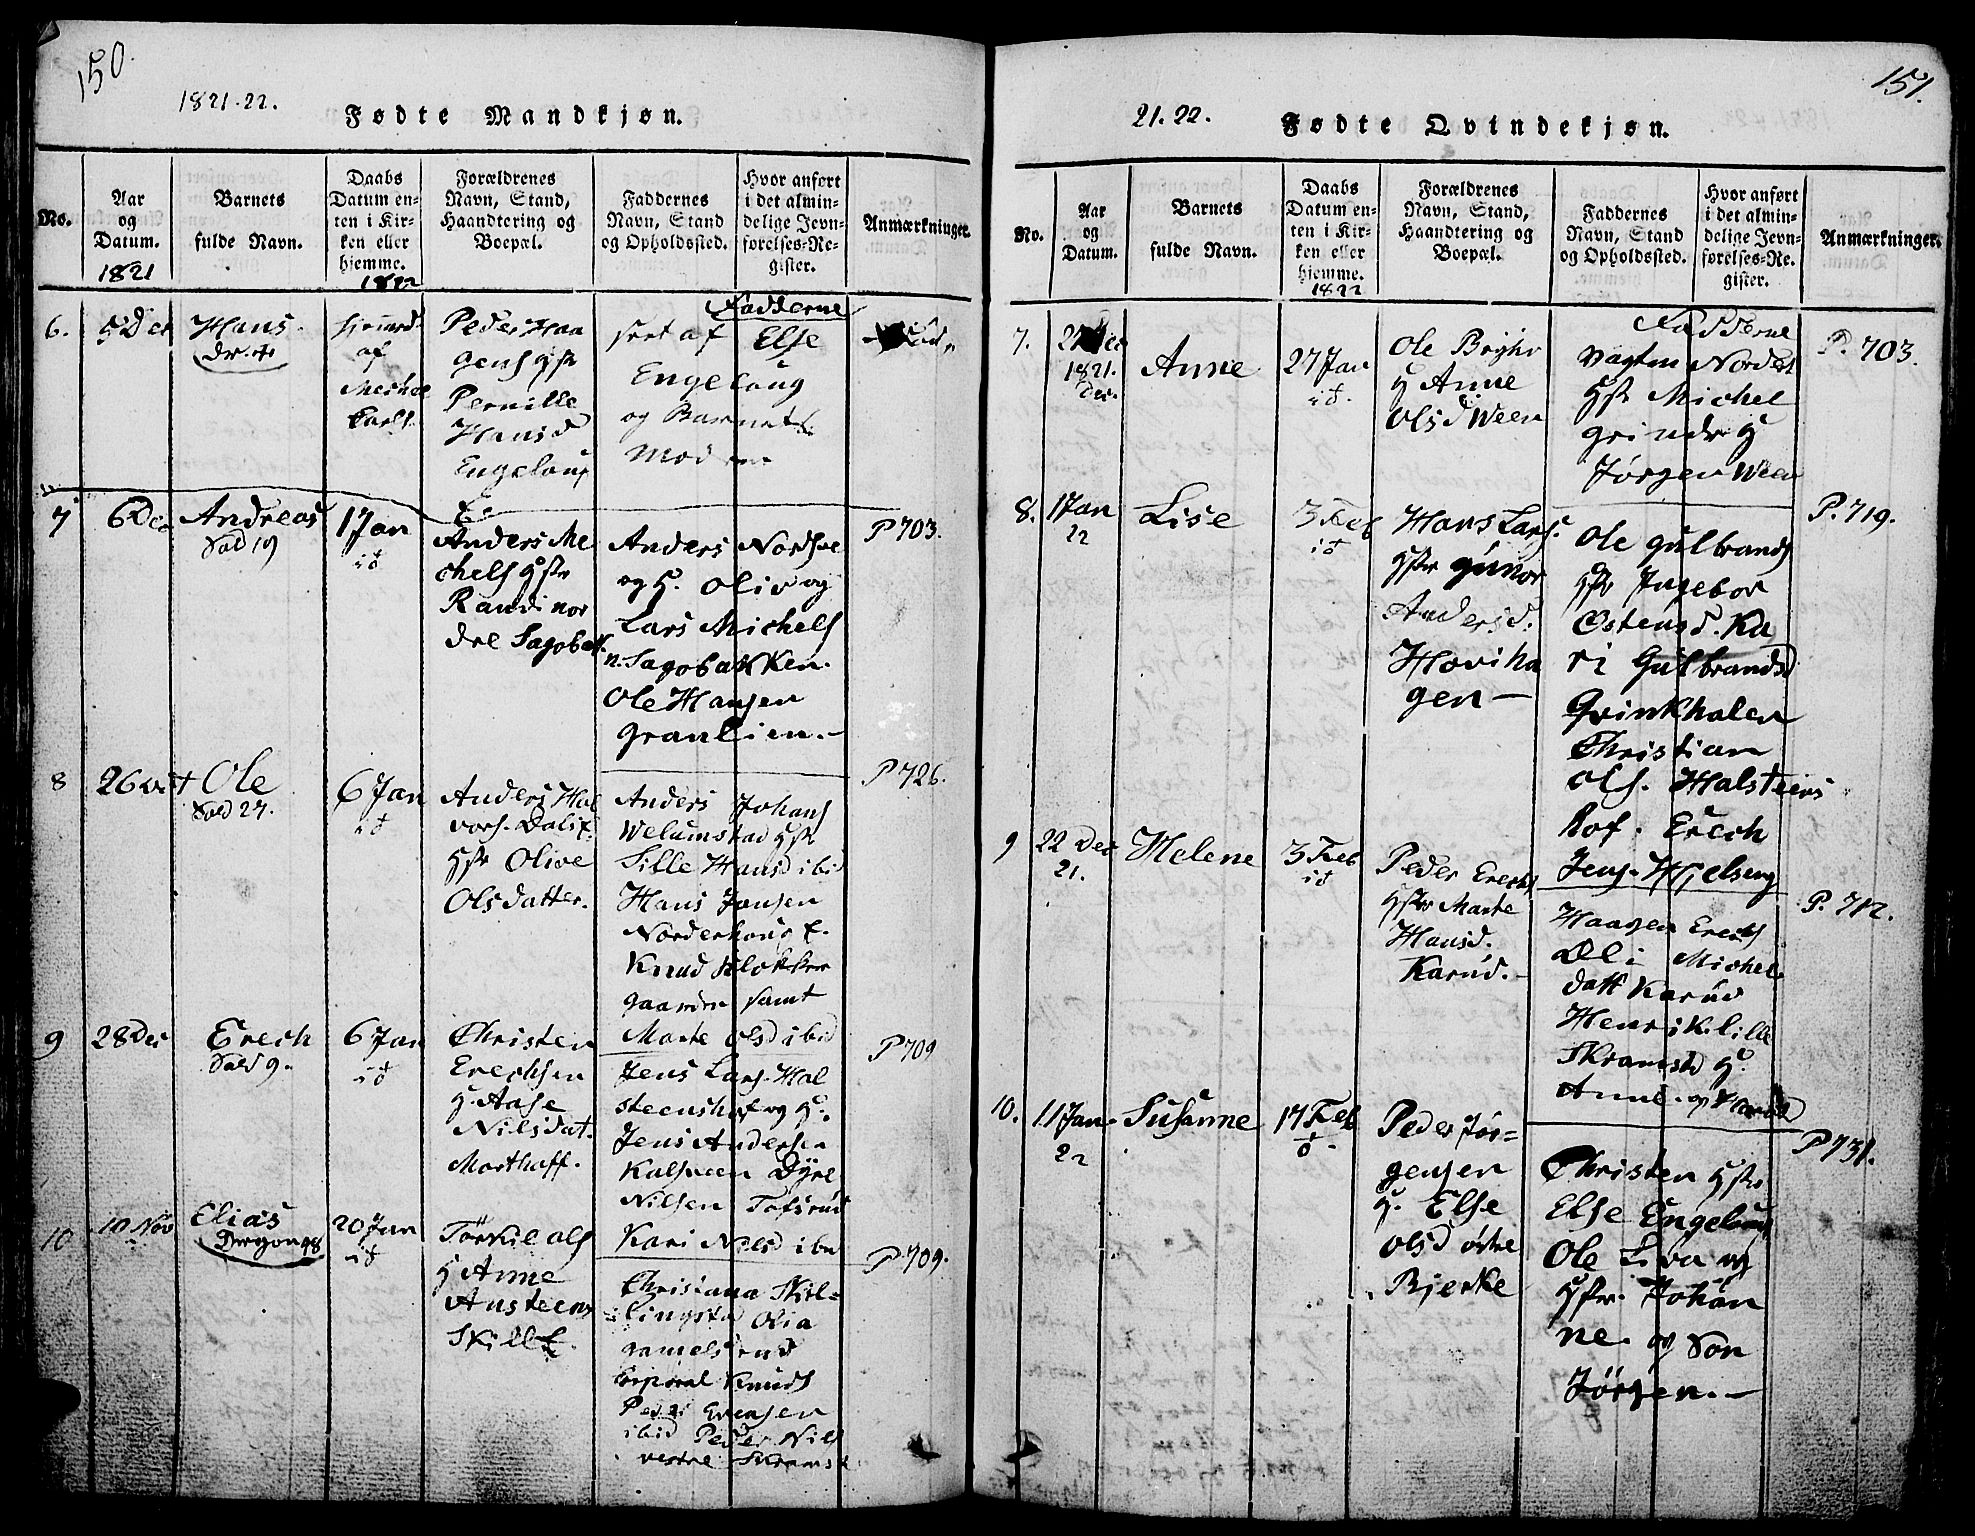 150.
1821-22.
Fødte Mandkjøn.
No.
Aar
og
Datum.
1821
Barnets
fulde Navn.
Daabs
Datum en-
ten i Kir-
ken eller
hjemme.
1822
Forældrenes
Navn, Stand,
Haandtering og
Boepæl.
Faddernes
Navn, Stand
og Opholdssted.
Hvor anført
i det almin-
delige Jevn-
førelses-Re-
gister.
Anmærkninger.
6.
5 Dec
Hans
af
Peder Haa
gens
Pernille
Hansd
Engeloug
Fadderne
af Else
Engeloug
og Barnets
Moder
7
6 Dec
Andreas
Død 19
1 Jan
Anders Me
chels
Randi nor
dre Sagobak.
Anders Nordsve
og H. Oliv og
Lars Michels
n. Sagobakken.
Ole Hansen
Granlien.-
P 703.
8
26
Ole
Død 27.
6 Jan
Anders Hal
vors.
Olive
Olsdatter.
Anders Johans
Sille Hansd ibid
Hans Jansen
Norderhoug E.
Knud Klokker
gaarden samt
Marte Olsd ibid
P 726.
9
28 Dec
Erech
Død 9.
6 Jan
Christen
Erechsen
H. Aase
Nilsdat.
Morthoff.
Jens Lars. Hal
steenshof og H.
Jens Andersen
Kalsveen Dyre
Nilsen
Kari Nilsd ibid
P 709
10
10 Nov
Elias
20 Jan
Torkil Ols
H Anne
Austeens
Skille.
Christiana Skil-
lingstad Olia
Corporal Knuds
Peder Evensen
ibid Peder Nils
vestre Skramst
P 709.
151.
21.22.
Fødte Qvindekjøn.
No.
Aar
og
Datum.
Barnets
fulde Navn.
Daabs
Datum en-
ten i Kir-
ken eller
hjemme.
1822
Forældrenes
Navn, Stand,
Haandtering og
Boepæl.
Faddernes
Navn, Stand
og Opholdssted.
Hvor anført
i det almin-
delige Jevn-
førelses-Re-
gister.
Anmærkninger.
7.
1821.
Dec.
Anne
27 Jan
Ole
H Anne
Olsd Ween
Fadderne
Michel
Grinder H
Jørgen Ween
P. 703.
8.
1 Jan
22
Lise
3 Feb
Hans Lars.
Gunor
Andersd.
Hoviha
gen-
Ole Gulbrands
Ingebor
Ostensd. Ka
ri Gulbrandsd
Grinkhalen
Christian
Ols. Halsteens
hof. Erech
Jens. Hjelseng
P. 719.
9
22 Dec
21.
Helene
3 Feb
Peder Erechs
Marte
Hansd.
Karud.-
Haagen Erechs
Oli Michels
datt Karud
Henrik lille
Skramstd H.
Anne.
P. 712.
10.
11 Jan.
22
Susanne
17 Feb
Peder Jør=
gensen
H. Else
Olsd østre
Bjerke
Christen
Else Engeloug
Ole og
Johan
ne og Søn
Jørgen.-
P 731.